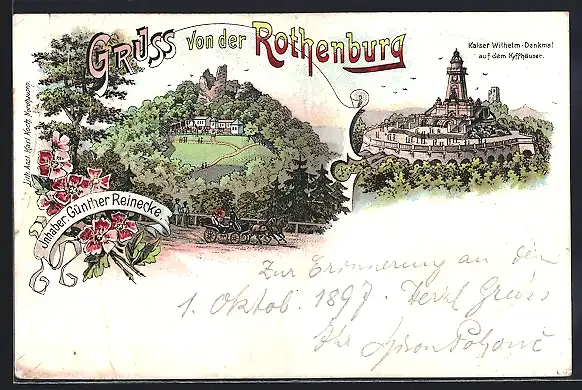 Gruss von der Rothenburg
Kaiser Wilhelm-Denkmal
auf dem Kyffhäuser.
Inhaber: Günther Reinecke.
Zur Erinnerung an den
1. Oktob. 1897. Herzl Gruss
Ihr